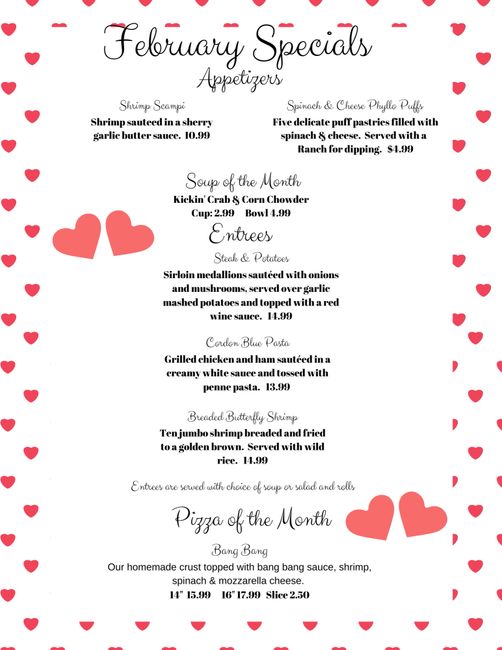 February Specials
Appetizers
Shrimp Scampi
Shrimp sauteed in a sherry
garlic butter sauce. 10.99
Spinach & Cheese Phyllo Puffs
Five delicate puff pastries filled with
spinach & cheese. Served with a
Ranch for dipping. $4.99
Soup of the Month
Kickin' Crab & Corn Chowder
Cup: 2.99 Bowl 4.99
Entrees
Steak & Potatoes
Sirloin medallions sautéed with onions
and mushrooms, served over garlic
mashed potatoes and topped with a red
wine sauce. 14.99
Cordon Blue Pasta
Grilled chicken and ham sautéed in a
creamy white sauce and tossed with
penne pasta. 13.99
Breaded Butterfly Shrimp
Ten jumbo shrimp breaded and fried
to a golden brown. Served with wild
rice. 14.99
Entrees are served with choice of soup or salad and rolls
Pizza of the Month
Bang Bang
Our homemade crust topped with bang bang sauce, shrimp,
spinach & mozzarella cheese.
14" 15.99 16" 17.99 Slice 2.50